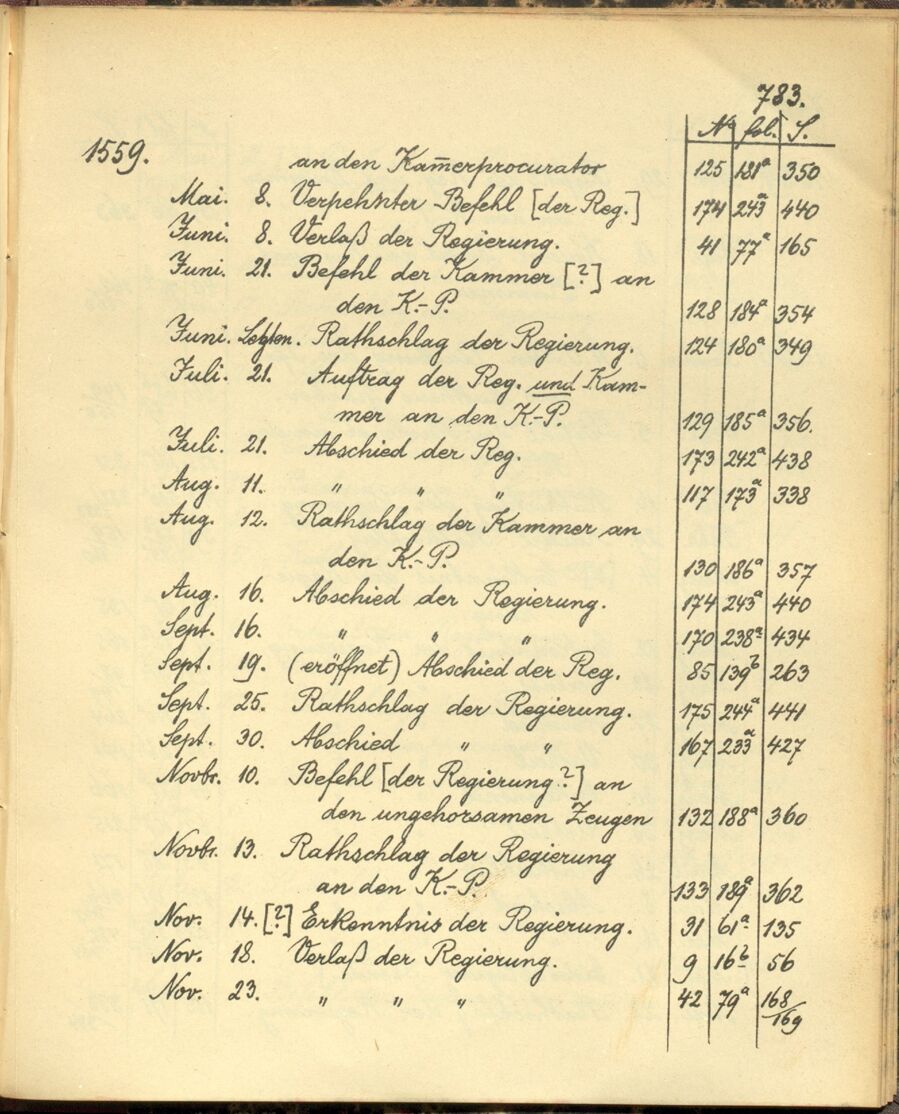 783.
Nº fol. S.
1559.
an den Kam̅erprocurator 125 181a 350
Mai. 8. Verpehnter Befehl [der Reg.] 174 243a 440
Juni. 8. Verlaß der Regierung. 41 77a 165
Juni. 21. Befehl der Kammer [?] an
den K.-P. 128 184a 354
Juni. Letzten. Rathschlag der Regierung. 124 180a 349
Juli. 21. Auftrag der Reg. und Kam-
mer an den K.-P. 129 185a 356.
Juli. 21. Abschied der Reg. 173 242a 438
Aug. 11. " " " 117 173a 338
Aug. 12. Rathschlag der Kammer an
den K.-P. 130 186a 357
Aug. 16. Abschied der Regierung. 174 243a 440
Sept. 16. " " " 170 238a 434
Sept. 19. (eröffnet) Abschied der Reg. 85 139b 263
Sept. 25. Rathschlag der Regierung. 175 244a 441
Sept. 30. Abschied " " 167 233a 427
Novbr. 10. Befehl [der Regierung?] an
den ungehorsamen Zeugen 132 188a 360
Novbr. 13. Rathschlag der Regierung
an den K.-P. 133 189a 362
Nov. 14. [?] Erkenntnis der Regierung. 31 61a 135
Nov. 18. Verlaß der Regierung. 9 16b 56
Nov. 23. " " " 42 79a 168/169